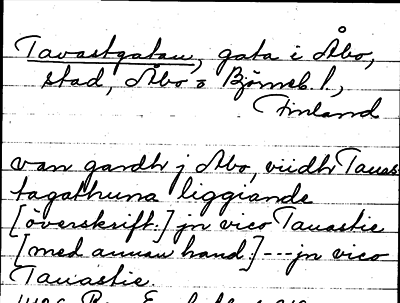 Tavastgatan, gata i Åbo,
stad, Åbo o Björneb. l.,
Finland
van gardh j Abo, viidh Tauas
tagathuna liggiande
[överskrift:] jn vico Tauastie
[med annan hand:] --- jn vico
Tauastie.